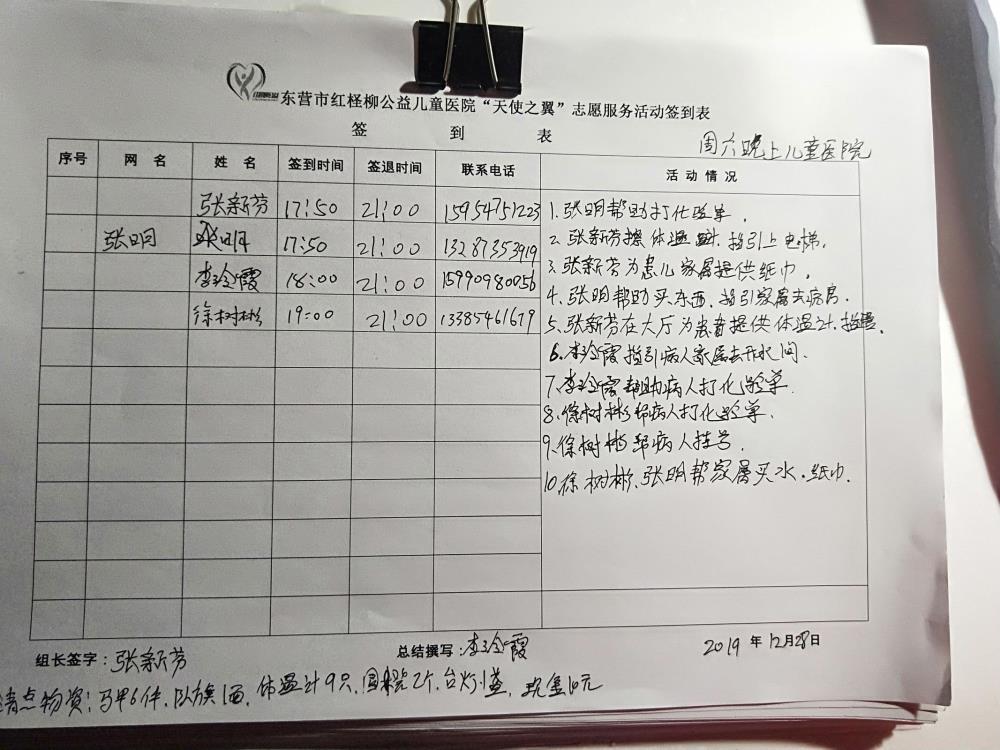 东营市红柽柳公益儿童医院“天使之翼”志愿服务活动签到表
签 到 表
周六晚上儿童医院
序号 网 名 姓 名 签到时间 签退时间 联系电话 活 动 情 况
张新芬 17:50 21:00 15954751223
张明 17:50 21:00 13287353919
李玲霞 18:00 21:00 15990980056
徐树彬 19:00 21:00 13385461679
1.张明帮助打化验单.
2.张新芬擦体温计.指引上电梯.
3.张新芬为患儿家属提供纸巾.
4.张明帮助买东西.指引家属去病房.
5.张新芬在大厅为患者提供体温计.
6.李玲霞指引病人家属去开水间.
7.李玲霞帮助病人打化验单.
8.徐树彬帮病人打化验单.
9.徐树彬帮病人挂号.
10.徐树彬、张明帮家属买水.纸巾.
组长签字:张新芬 总结撰写:李玲霞 2019 年 12月28日
清点物资:马甲6件,队旗1面,体温计9只,2个,台灯1盏,现金10元